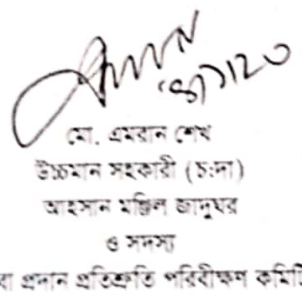 মো. এমরান শেখ
উচ্চমান সহকারী (চ:দা)
আহসান মঞ্জিল জাদুঘর
ও সদস্য
প্রদান প্রতিশ্রুতি পরিবীক্ষণ